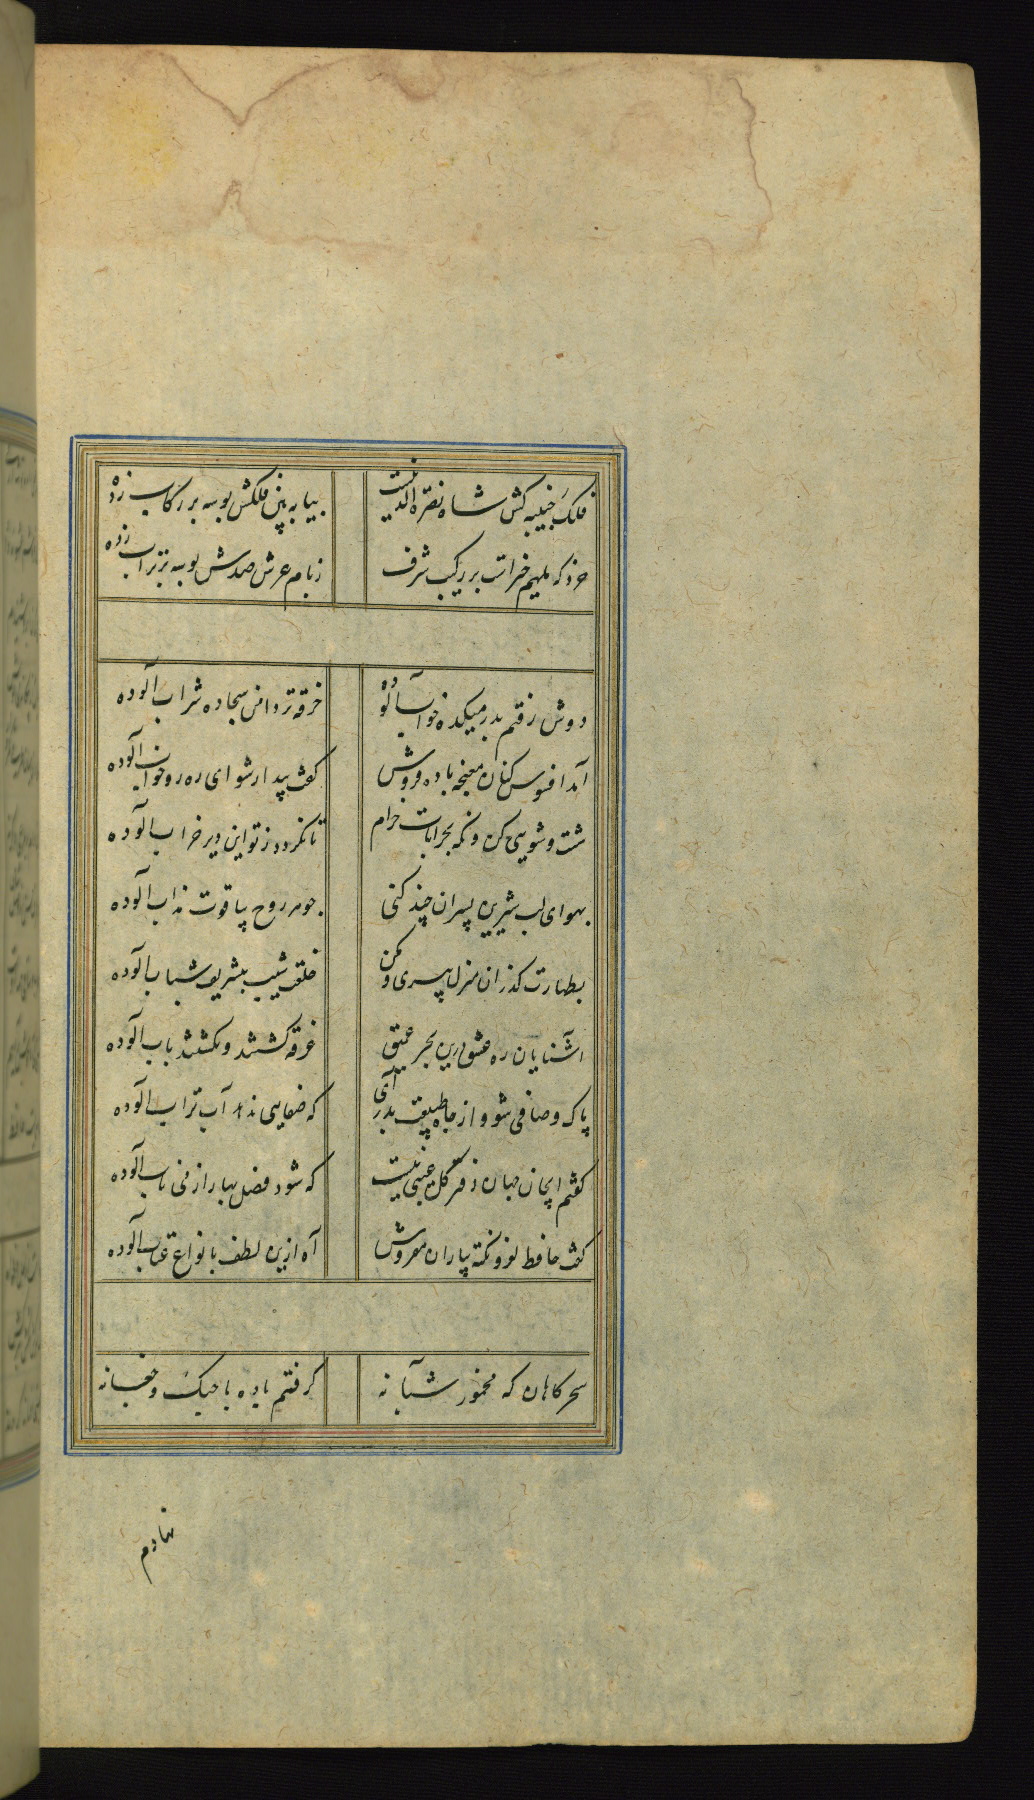 فلک جنیبه کش شاه نصرة الدینست بیا ببین فلکش بوسه بر رکاب زده
خرد که ملهم خیراتست بر کسب شرف ز بام عرش صدش بوسه بر تراب زده
دوش رفتم بدر میکده خواب آلوده خرقه تر دامن سجاده شراب آلوده
آمد افسوس کنان مغبچهٔ باده فروش گفت بیدار شو ای ره رو خواب آلوده
شست و شویی کن و آنگه بخرابات خرام تا نگردد ز تو این دیر خراب آلوده
بهوای لب شیرین پسران چند کنی جوهر روح بیاقوت مذاب آلوده
بطهارت گذران منزل پیری و مکن خلعت شیب بتشریف شباب آلوده
آشنایان ره عشق درین بحر عمیق غرقه گشتند و نگشتند بآب آلوده
پاک و صافی شو و از چاه طبیعت بدر آی که صفایی ندهد آب تراب آلوده
گفتم ای جان جهان دفتر گل عیبی نیست که شود فصل بهار از می ناب آلوده
گفت حافظ لغز و نکته بیاران مفروش آه ازین لطف بانواع عتاب آلوده
سحرگاهان که مخمور شبانه گرفتم باده با چنگ و چغانه
نهادم